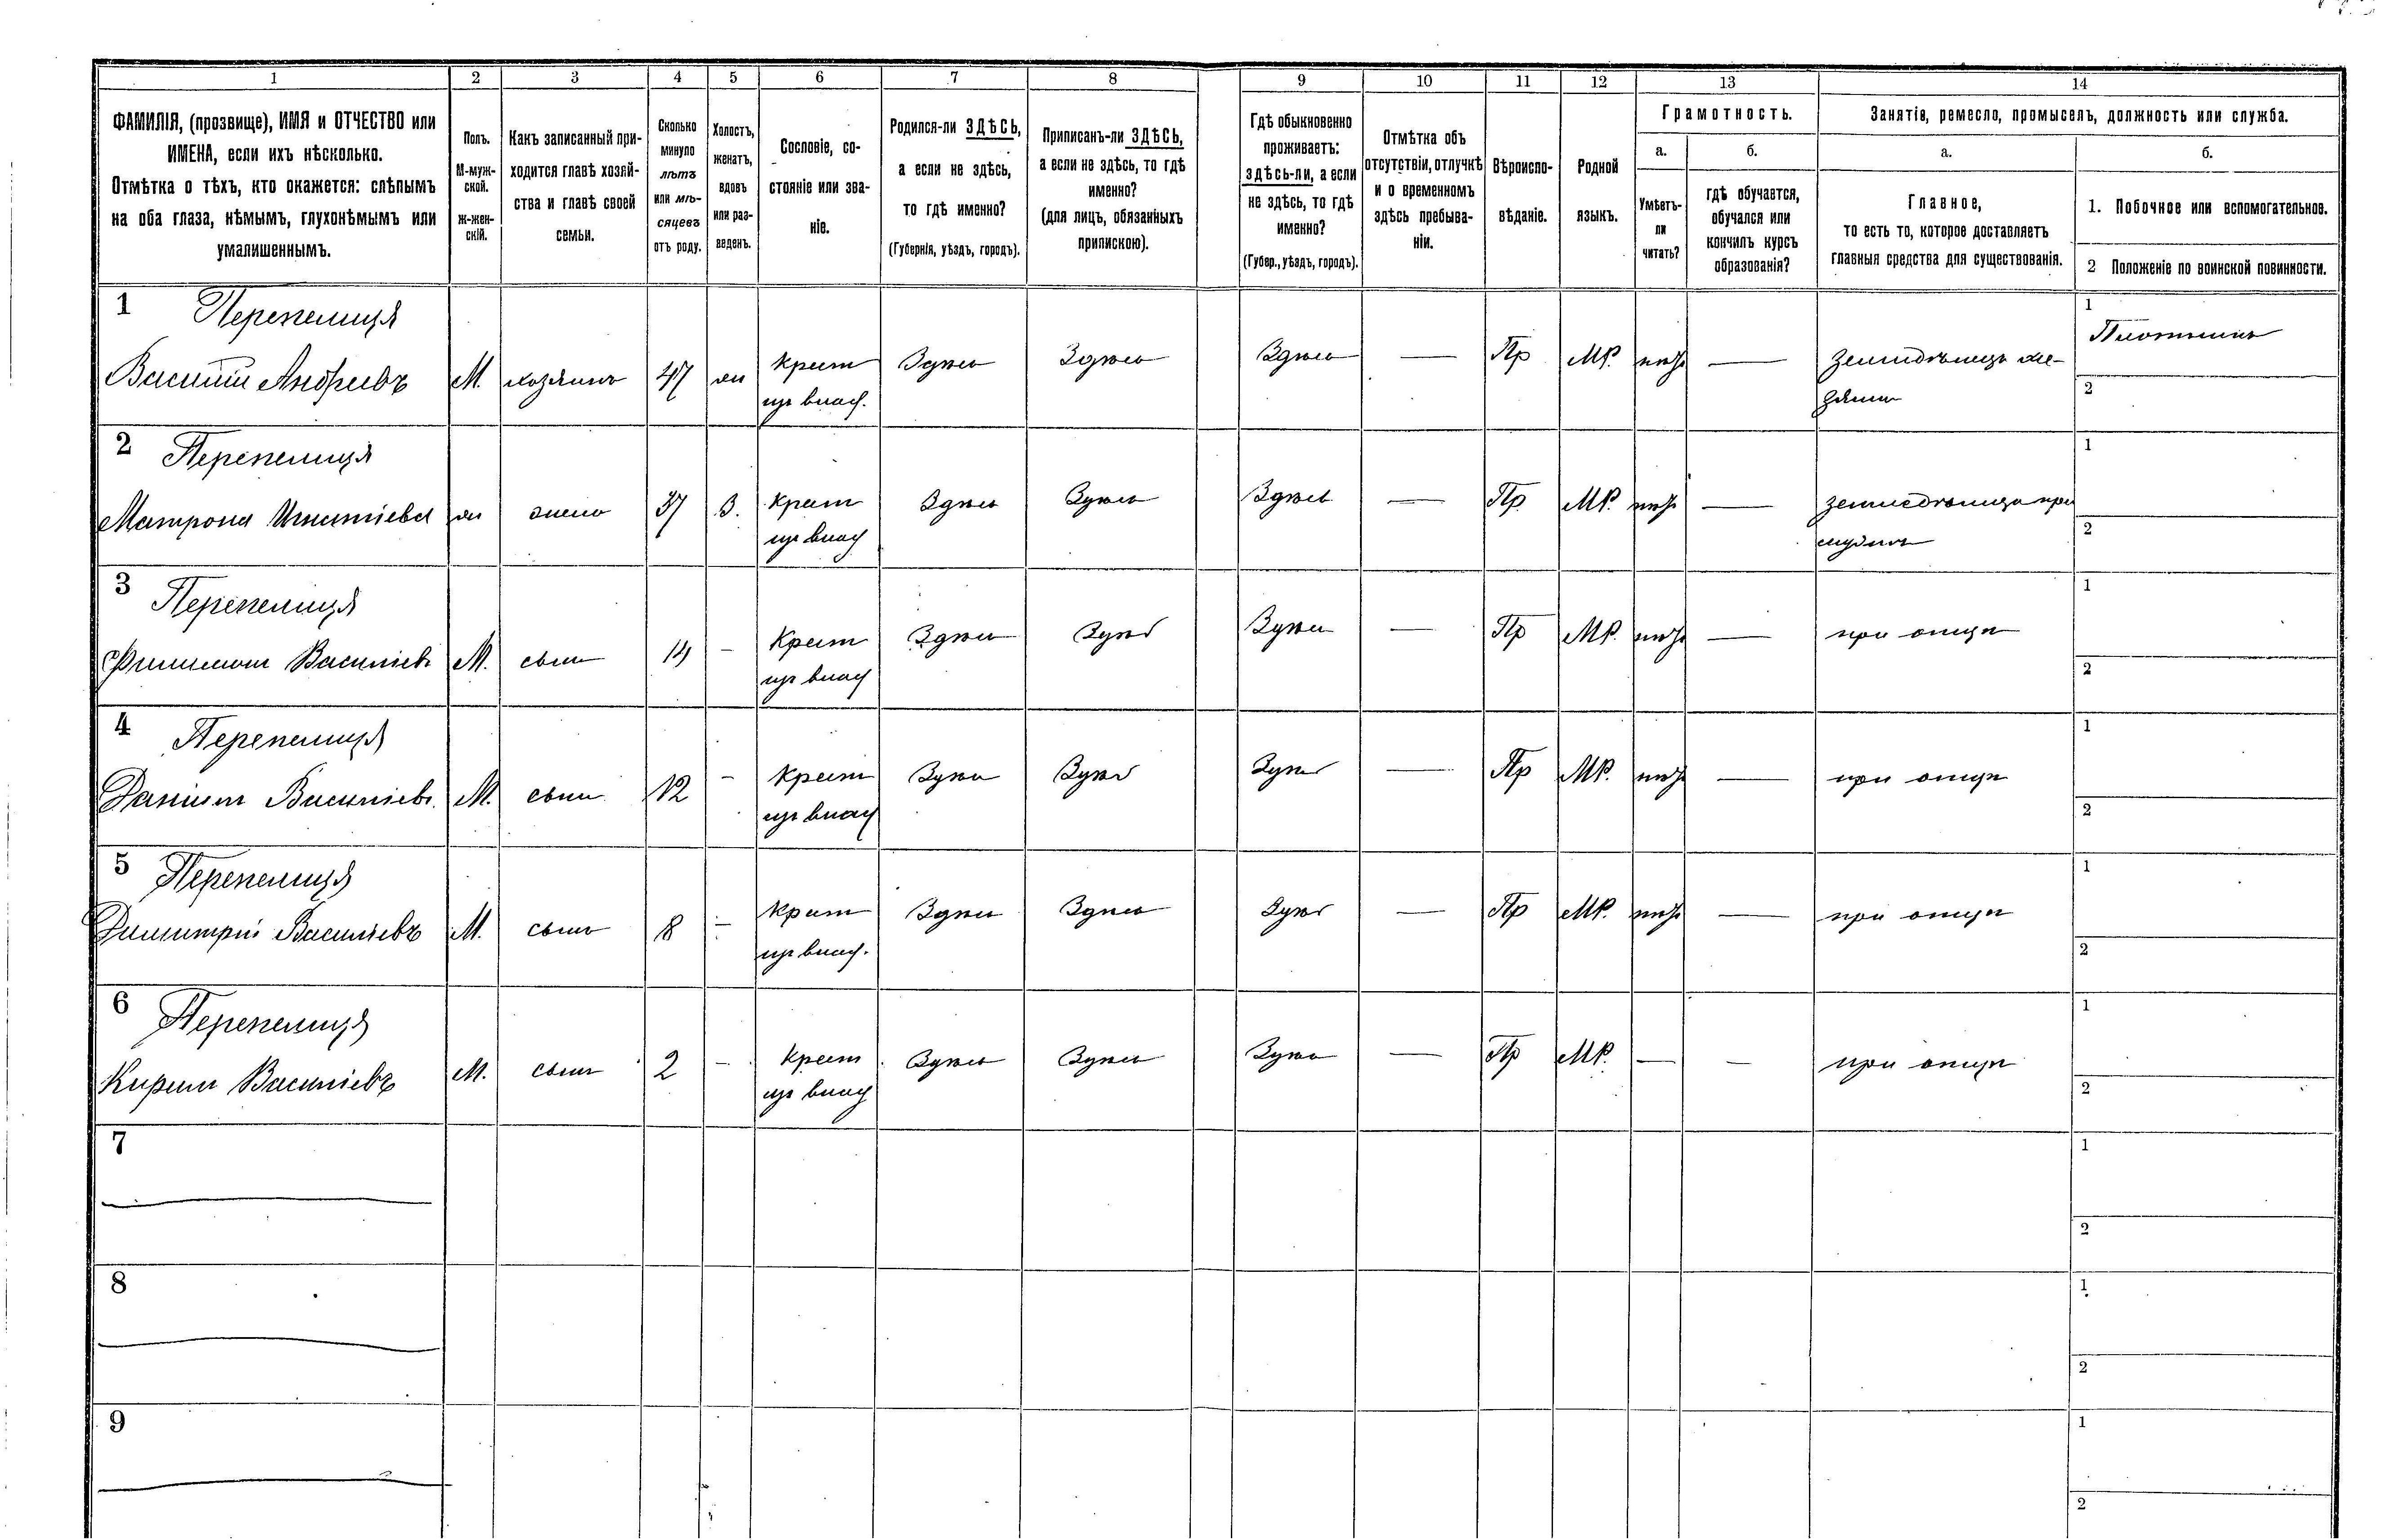 1 2 3 4 5 6 7 8 9 10 11 12 13 14
ФАМИЛІЯ, (прозвище), ИМЯ и ОТЧЕСТВО или
ИМЕНА, если ихъ нѣсколько.
Отмѣтка о тѣхъ, кто окажется: слѣпымъ
на оба глаза, нѣмымъ, глухонѣмымъ или
умалишеннымъ.
Полъ.
М-муж-
ской.
ж-жен-
скій.
Какъ записанный при-
ходится главѣ хозяй-
ства и главѣ своей
семьи.
Сколько
минуло
лѣтъ
или мѣ-
сяцевъ
отъ роду.
Холостъ,
женатъ,
вдовъ
или раз-
веденъ.
Сословіе, со-
стояніе или зва-
ніе.
Родился-ли ЗДѢСЬ,
а если не здѣсь,
то гдѣ именно?
(Губернія, уѣздъ, городъ).
Приписанъ-ли ЗДѢСЬ,
а если не здѣсь, то гдѣ
именно?
(для лицъ, обязанныхъ
припискою).
Гдѣ обыкновенно
проживаетъ:
здѣсь-ли, а если
не здѣсь, то гдѣ
именно?
(Губер., уѣздъ, городъ).
Отмѣтка объ
отсутствіи, отлучкѣ
и о временномъ
здѣсь пребыва-
ніи.
Вѣроиспо-
вѣданіе.
Родной
языкъ.
Грамотность.
а.
Умѣетъ-
ли
читать?
б.
гдѣ обучается,
обучался или
кончилъ курсъ
образованія?
Занятіе, ремесло, промыселъ, должность или служба.
а.
Главное,
то есть то, которое доставляетъ
главныя средства для существованія.
б.
1. Побочное или вспомогательное.
2 Положеніе по воинской повинности.
1 Перепелиця
Василій Андреевъ М. хозяинъ 47 Крест Здѣсь Здѣсь Здѣсь — Пр МР. — земледѣлецъ хо-
зяинъ
1 Плотникъ
2
2 Перепелиця
Матрона Игнатіева жена 37 З. Крест Здѣсь Здѣсь Здѣсь — Пр МР. — земледѣлица при
мужѣ
1
2
3 Перепелиця
Филимонъ Василіевъ М. сынъ 14 — Крест Здѣсь Здѣсь Здѣсь — Пр МР. — при отцѣ
1
2
4 Перепелиця
Даніилъ Василіевъ М. сынъ 12 — Крест Здѣсь Здѣсь Здѣсь — Пр МР. — при отцѣ
1
2
5 Перепелиця
Димитрій Василіевъ М. сынъ 8 — Крест Здѣсь Здѣсь Здѣсь — Пр МР. — при отцѣ
1
2
6 Перепелиця
Кирилъ Василіевъ М. сынъ 2 — Крест Здѣсь Здѣсь Здѣсь — Пр МР. — — при отцѣ
1
2
7
1
2
8
1
2
9
1
2